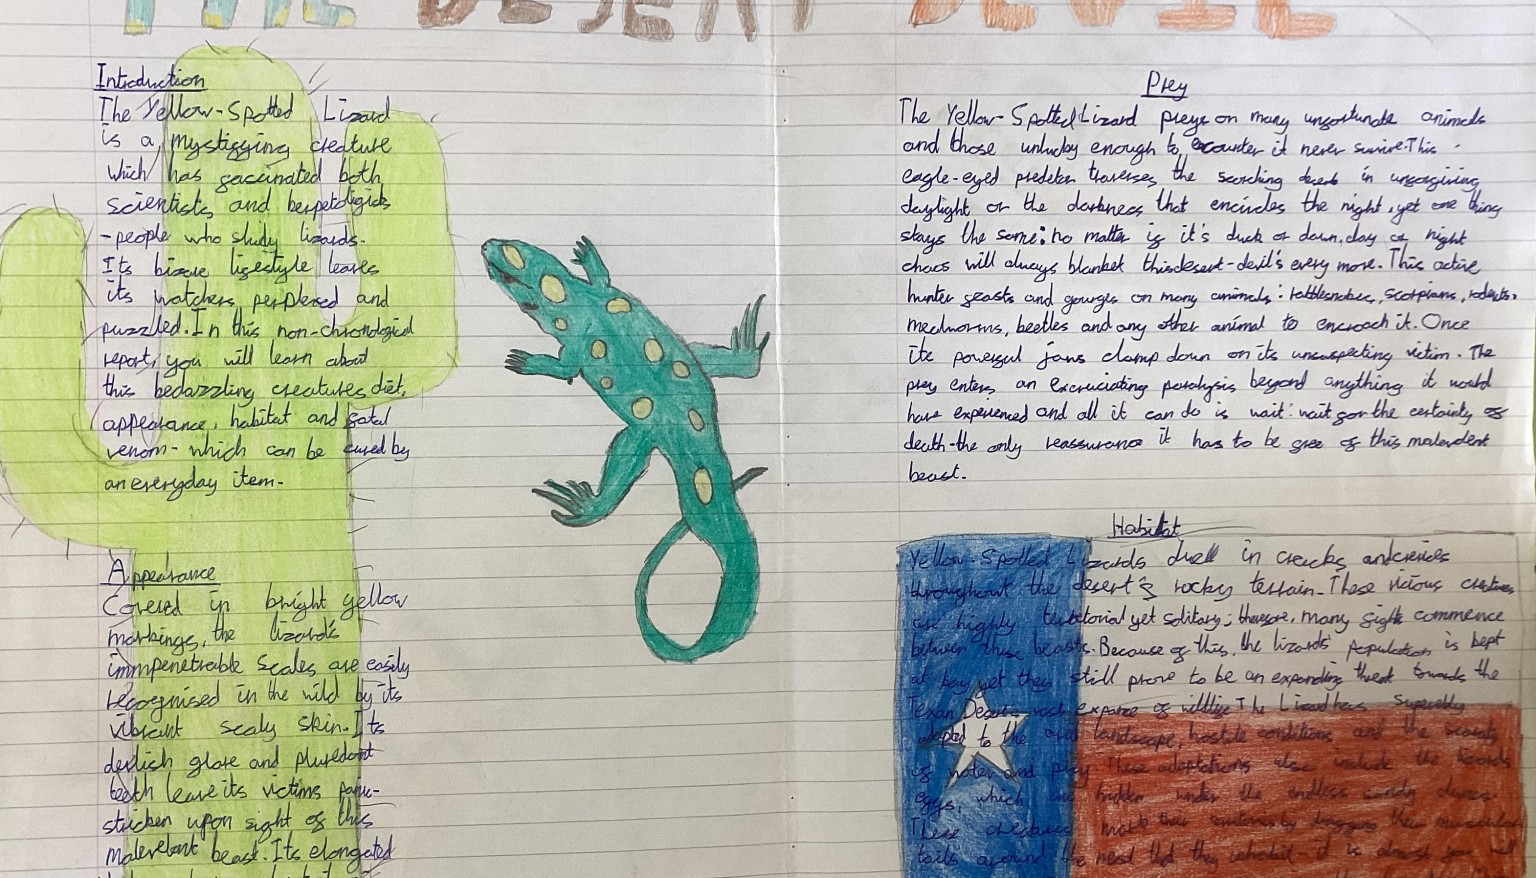 THE DESERT DEVIL
Introduction
The Yellow-Spotted Lizard
is a mystifying creature
which has fascinated both
scientists and herpetoligists
-people who study lizards-
Its bizare lifestyle leaves
its watchers perplexed and
puzzled. In this non-chronological
report, you will learn about
this bedazzling creatures diet,
appearance, habitat and fatal
venom- which can be cured by
an everyday item.
Appearance
Covered in bright yellow
markings, the lizard's
immpenetrable scales are easily
recognised in the wild by its
vibrant scaly skin. Its
devlish glare and
teeth leave its victims panic-
stricken upon sight of this
malevelant beast. Its elongated
Prey
The Yellow-Spotted Lizard preys on many unfortunate animals
and those unlucky enough to encounter it never survive. This
eagle-eyed predetor traverses the scorching desert in unforgiving
daylight or the darkness that encircles the night, yet one thing
stays the same: no matter if it's dusk or dawn, day or night
chaos will always blanket this desert-devil's every move. This active
hunter feasts and gourges on many animals: rattlesnakes, scorpians, rodents,
mealworms, beetles and any other animal to encroach it. Once
its powerful jaws clamp down on its unsuspecting victim. The
prey enters an excruciating paralysis beyond anything it would
have experienced and all it can do is wait: wait for the certainty of
death-the only reassurance it has to be free of this malevelent
beast.
Habitat
Yellow-Spotted Lizards dwell in cracks and crevices
throughout the desert's rocky terrain. These vicious creatures
are highly territorial yet solitary; therefore, many fights commence
between these beasts. Because of this, the lizards' population is kept
at bay yet they still prove to be an expanding threat towards the
Texan Desert's vast expanse of wildlife. The Lizard has superbly
adapted to the arid landscape, hostile conditions and the scarcity
of water and prey. These adaptations also include the lizards
eggs, which are hidden under the endless sandy dunes.
These creatures mark their territory by dragging their muscular
tails around the area that they inhabit- it is almost